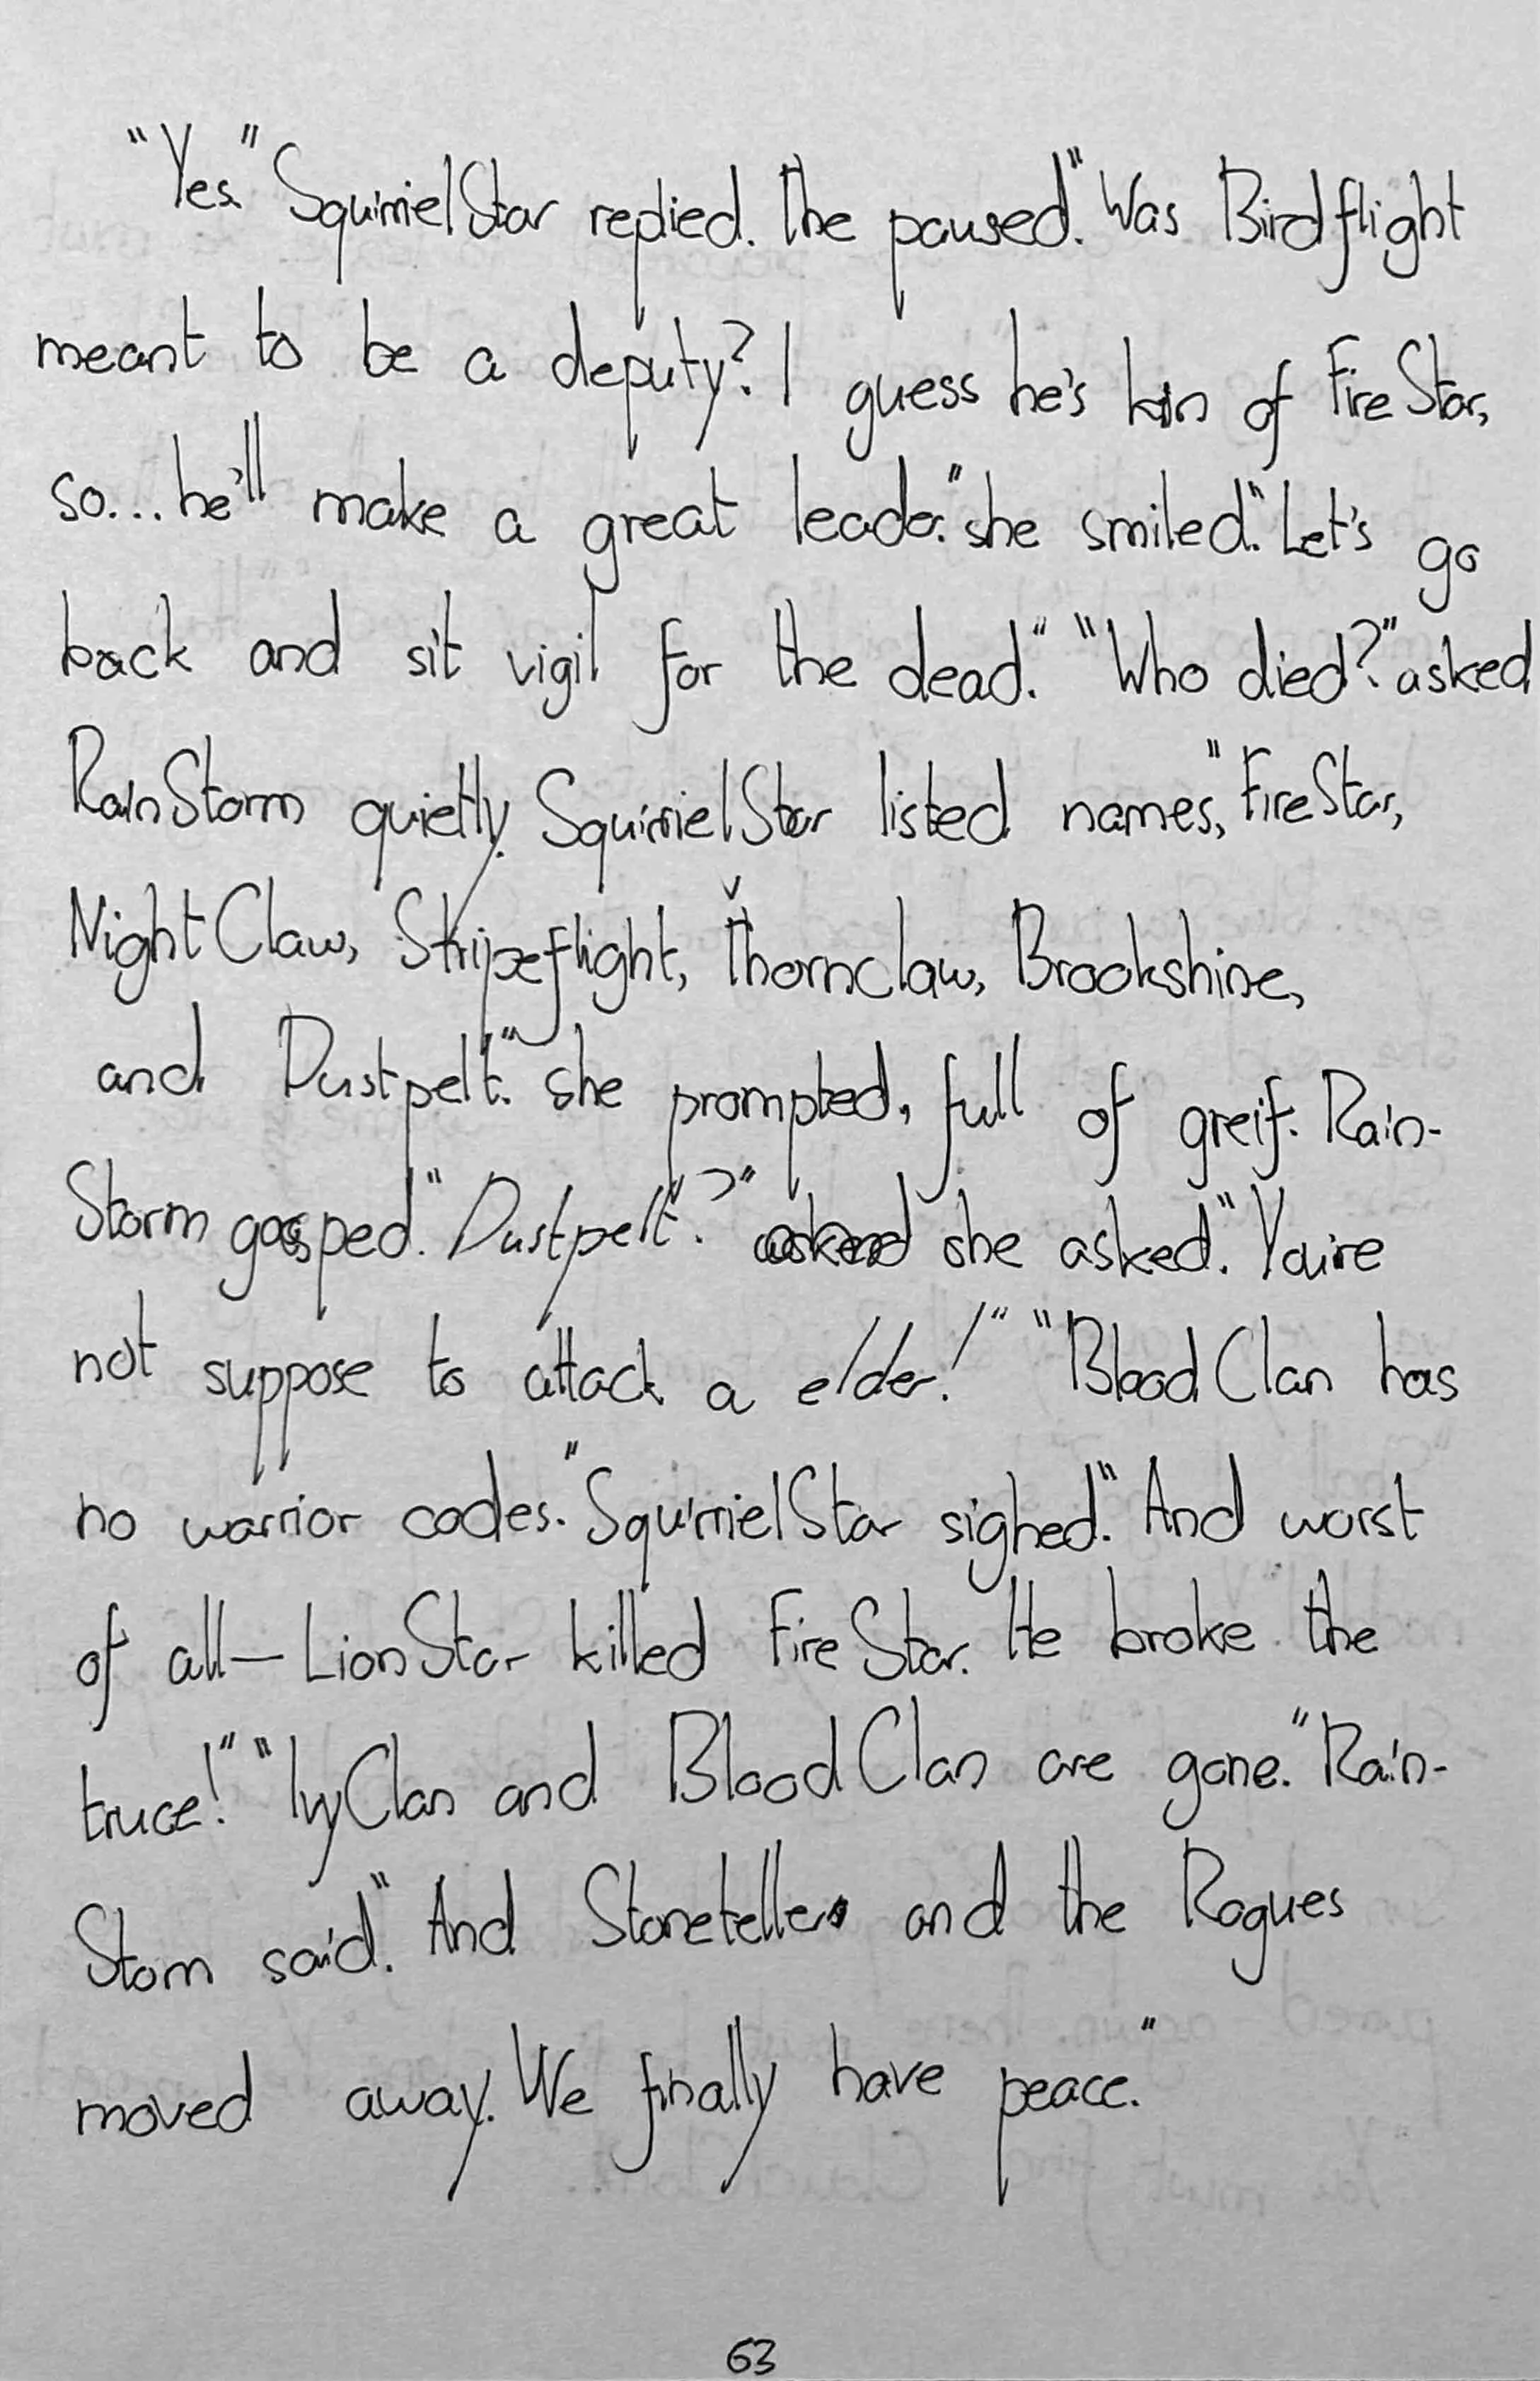 "Yes." SquirrielStar replied. The paused. "Was Birdflight
meant to be a deputy? I guess he's kin of FireStar,
so... he'll make a great leader." she smiled. "Let's go
back and sit vigil for the dead." "Who died?" asked
RainStorm quietly. SquirrielStar listed names, "FireStar,
NightClaw, Stripeflight, Thornclaw, Brookshine,
and Dustpelt." she prompted, full of greif. Rain-
Storm gasped. "Dustpelt?" she asked. "You're
not suppose to attack a elder!" "BloodClan has
no warrior codes." SquirrielStar sighed. "And worst
of all—LionStar killed FireStar. He broke the
truce!" "IvyClan and BloodClan are gone." Rain-
Storm said. "And Stoneteller and the Rogues
moved away. We finally have peace."
63